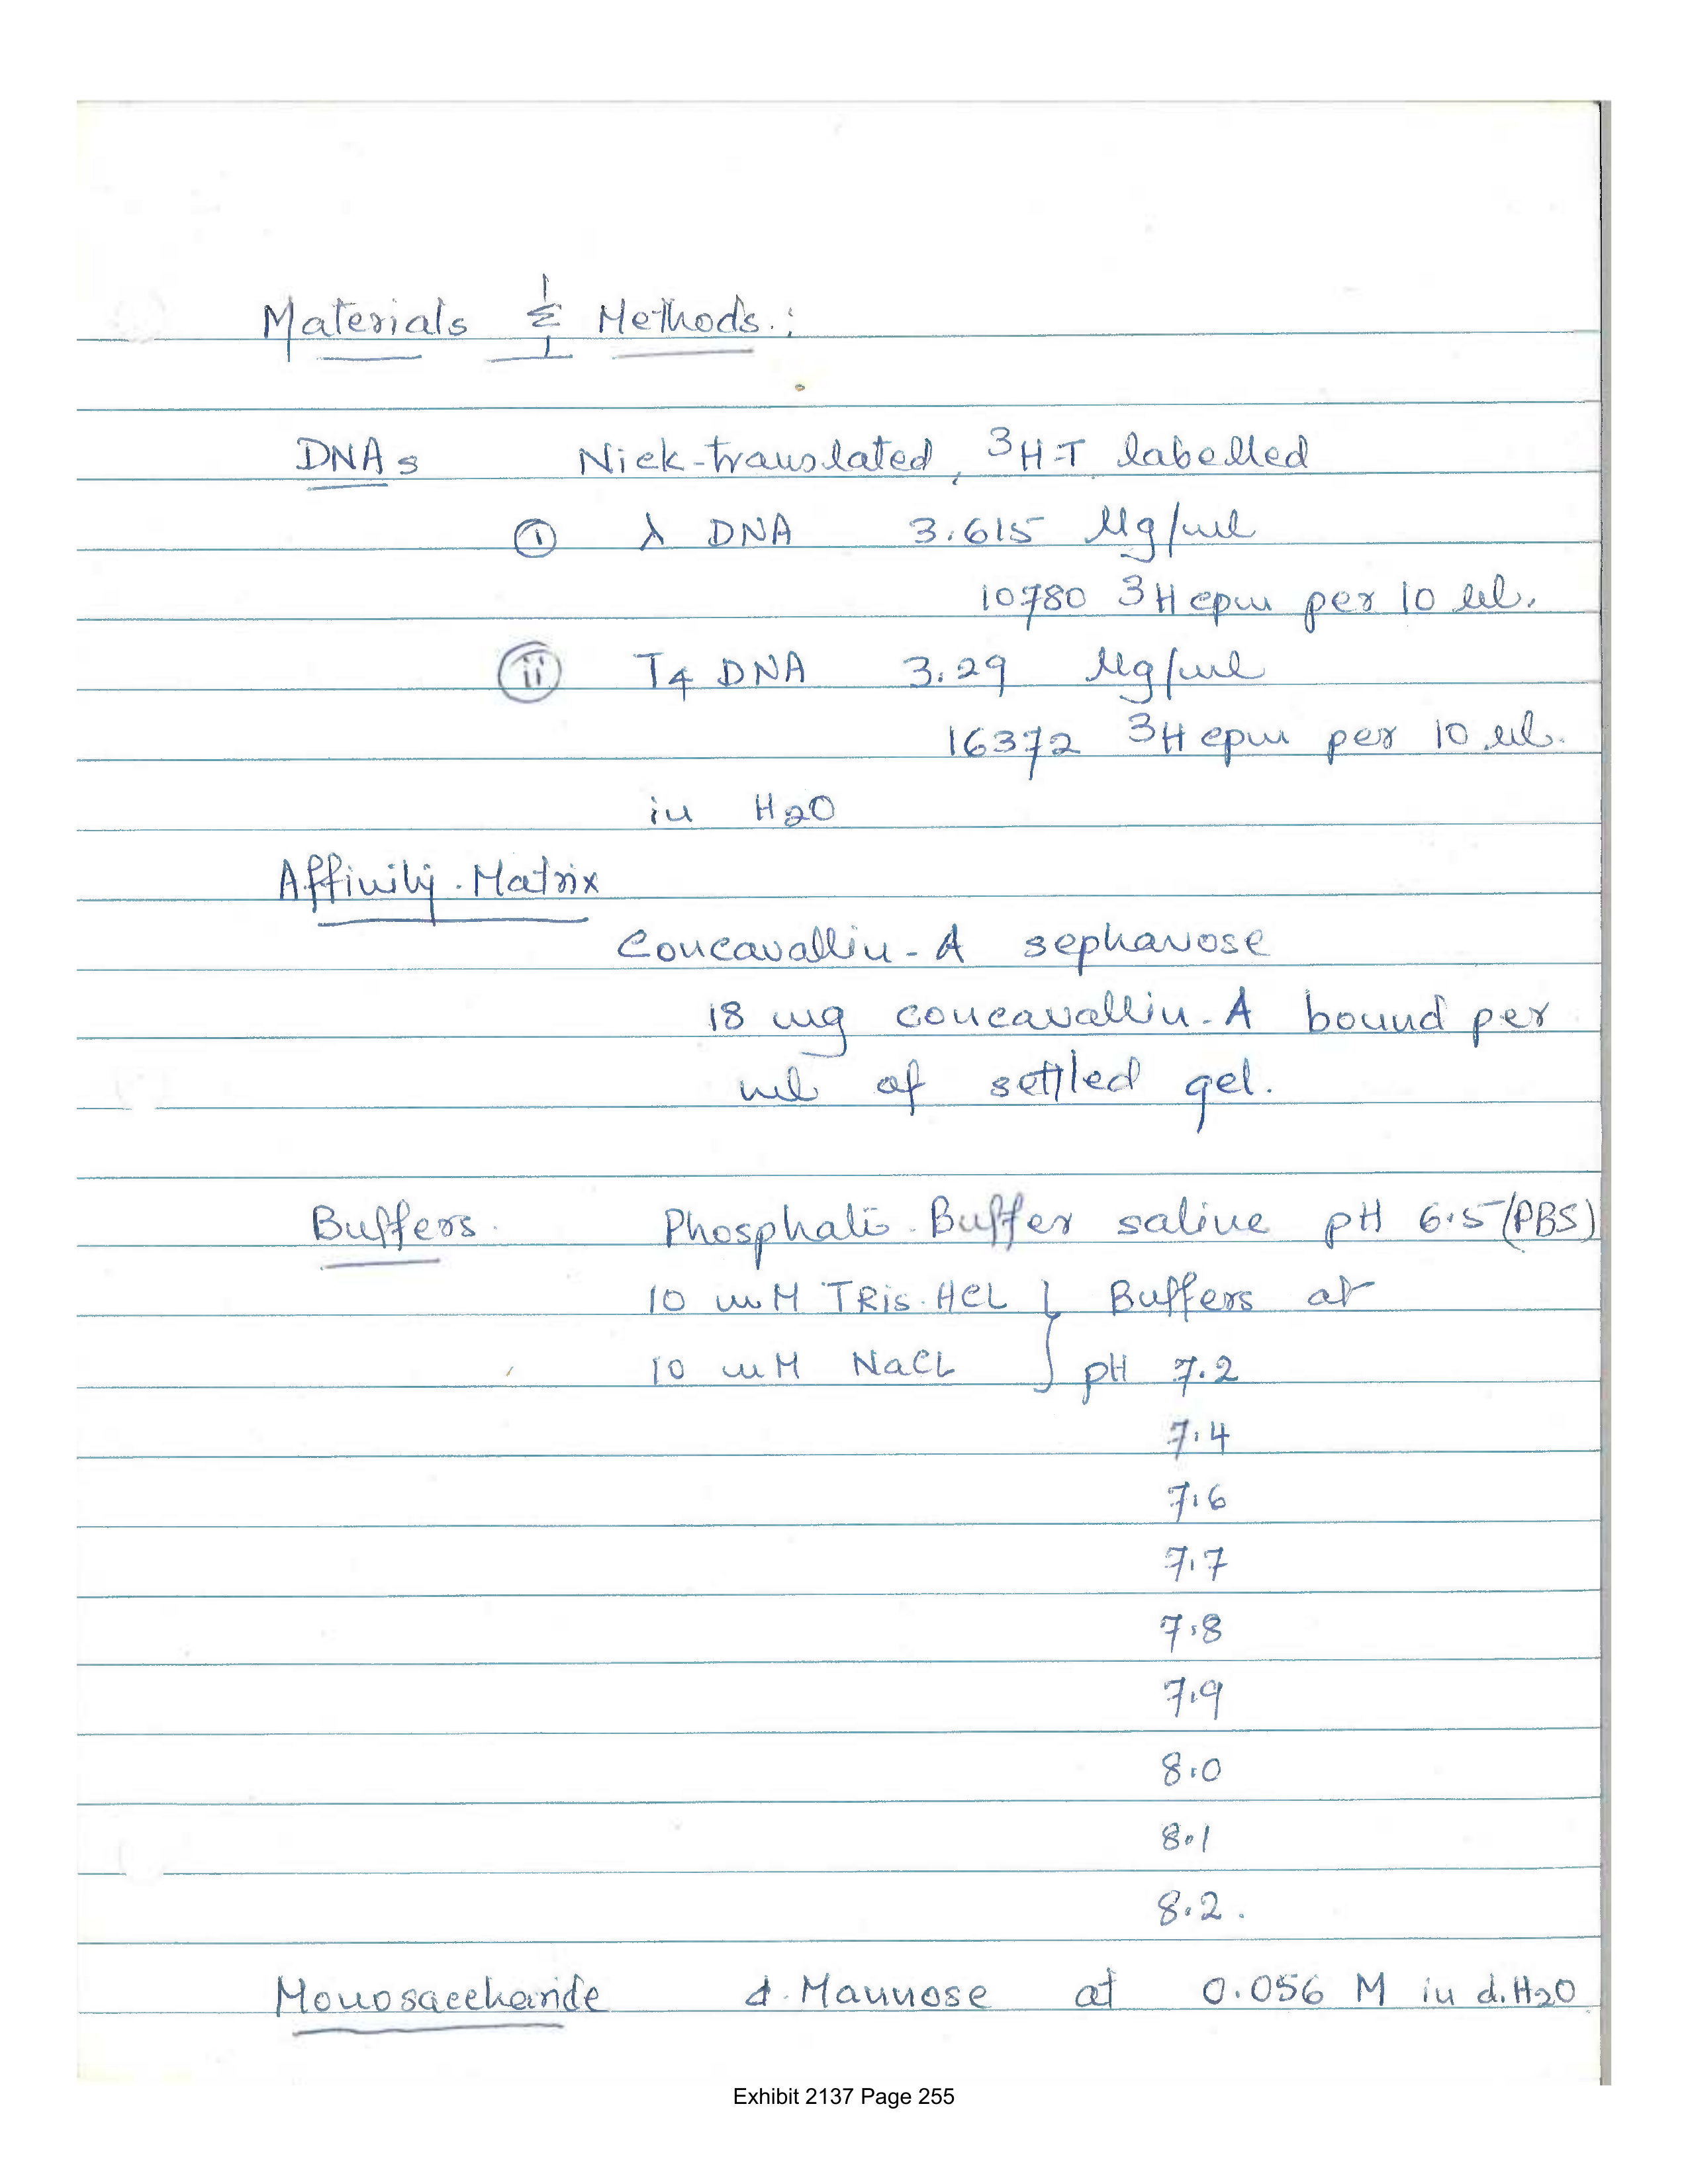 Materials & Methods.:
DNAs Nick-translated, 3H-T labelled
(i) λ DNA 3.615 µg/ml
10780 3H cpm per 10 µl.
(ii) T4 DNA 3.29 µg/ml
16372 3H cpm per 10 µl.
in H2O
Affinity. Matrix
Concavallin-A sepharose
18 mg concavallin-A bound per
ml of settled gel.
Buffers. Phosphate Buffer saline pH 6.5 (PBS)
10 mM TRis. HCL } Buffers at
10 mM NaCL } pH 7.2
7.4
7.6
7.7
7.8
7.9
8.0
8.1
8.2.
Monosaccharide d. Mannose at 0.056 M in d.H2O.
Exhibit 2137 Page 255